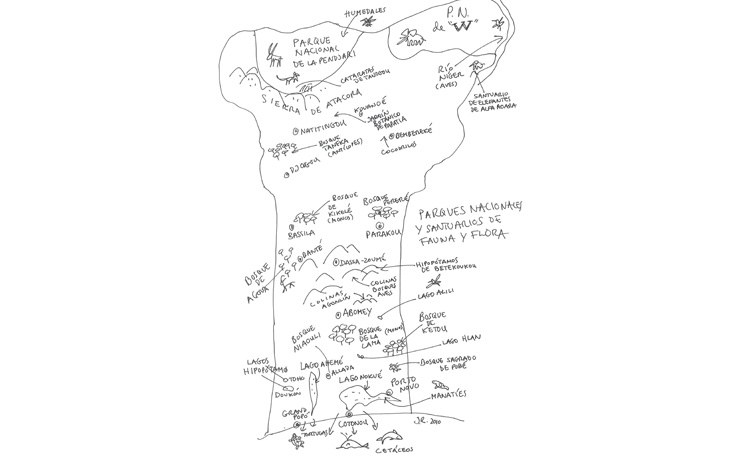 HUMEDALES
P.N.
de "W"
PARQUE
NACIONAL
DE LA PENDJARI
CATARATAS
DE TANOGOU
RÍO
NÍGER
(AVES)
SANTUARIO
DE ELEFANTES
DE ALFA KOARA
SIERRA DE ATACORA
KOUANDÉ
JARDÍN
BOTÁNICO
PAPATIA
NATITINGOU
BEMBEREKÉ
COCODRILOS
BOSQUE
TANEKA
(ANTÍLOPES)
DJOUGOU
BOSQUE
DE
KIKELÉ
(MONOS)
BOSQUE
PEPERÉ
BASSILA
PARAKOU
PARQUES NACIONALES
Y SANTUARIOS DE
FAUNA Y FLORA
BOSQUE
DE
AGOUA
BANTÉ
DASSA-ZOUMÉ
HIPOPÓTAMOS
DE BETEKOUKOU
COLINAS
BOSQUES
AVES
COLINAS
AGONLIN
LAGO AZILI
ABOMEY
BOSQUE
DE
KETOU
BOSQUE
NIAOULI
BOSQUE (MONOS)
DE LA
LAMA
LAGO HLAN
LAGOS
HIPOPÓTAMOS
TOHO
DOUKON
LAGO AHEMÉ
ALLADA
LAGO NOKUÉ
BOSQUE SAGRADO
DE POBÉ
PORTO
NOVO
MANATÍES
GRAND
POPÓ
TORTUGAS
COTONOU
CETÁCEOS
J.R. 2010